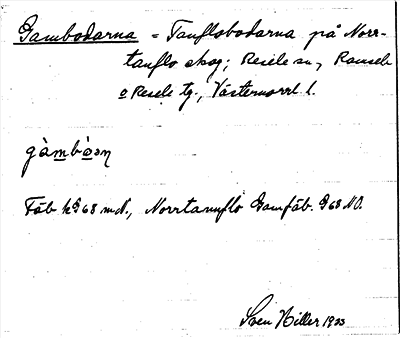 Gambodarna = Tanflobodarna på Norr-
tanflo skog; Resele sn, Ramsele
o Resele tg., Västernorrl. l.
gàmbòɷn
Fäb. k G 68 m.fl., Norrtannflo Gamfäb. G 68 NO.
Sven Hiller 1933